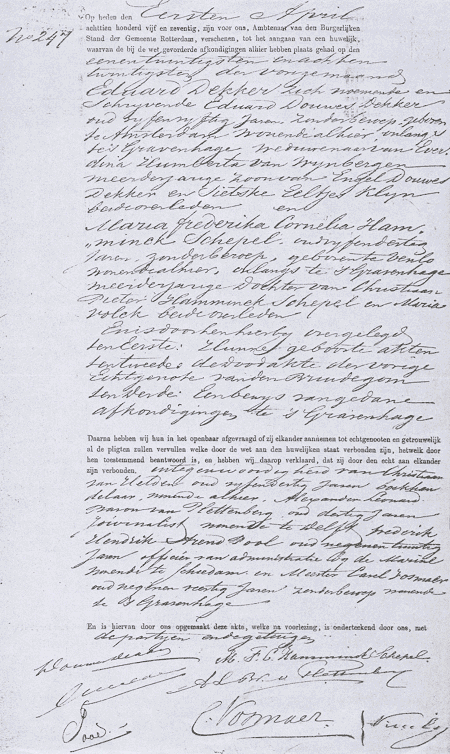 No 247
Op heden den Eersten April
achttien honderd vijf en zeventig, zijn voor ons, Ambtenaar van den Burgerlijken
Stand der Gemeente Rotterdam, verschenen, tot het aangaan van een huwelijk,
waarvan de bij de wet gevorderde afkondigingen alhier hebben plaats gehad op den
eenentwintigsten en achten
twintigsten der vorige maand
Eduard Dekker zich noemende en
schrijvende Eduard Douwes Dekker
oud vijfenvijftig Jaren zonder beroep, geboren
te Amsterdam wonende alhier, onlangs
te 's Gravenhage, weduwenaar van Ever
dina Humberta van Wijnbergen
meerderjarige zoon van Engel Douwes
Dekker en Sietske Eeltjes Klijn
beide overleden en
Maria Frederika Cornelia Ham
"minck Schepel, oud vijfendertig
Jaren, zonder beroep, geboren te Venlo
wonende alhier, onlangs te 's Gravenhage
meerderjarige dochter van Christiaan
Pieter Hamminck Schepel en Maria
Volck beide overleden
En is door hen hierby overgelegd
ten Eerste: Hunne geboorte akten
ten tweede: de doodakte der vorige
Echtgenote van den Bruidegom
ten derde: Een bewys van gedane
afkondigingen te 's Gravenhage
Daarna hebben wij hun in het openbaar afgevraagd of zij elkander aannemen tot echtgenooten en getrouwelijk
al de pligten zullen vervullen welke door de wet aan den huwelijken staat verbonden zijn, hetwelk door
hen toestemmend beantwoord is, en hebben wij daarop verklaard, dat zij door den echt aan elkander
zijn verbonden. in tegenwoordigheid van Christiaan
van Helden oud vijfendertig Jaren boekhan
delaar, wonende alhier, Alexander Leonard
Baron van Plettenberg oud dertig Jaren
Journalist wonende te Delft Frederik
Hendrik Arend Pool oud negenentwintig
Jaren officier van administratie by de Marine
wonende te Schiedam en Meester Carel Vosmaer
oud negenenveertig Jaren zonder beroep wonende
te 's Gravenhage
En is hiervan door ons opgemaakt deze akte, welke na voorlezing, is onderteekend door ons, met
de partijen en de getuigen
Douwes Dekker M. F. C. Hamminck Schepel.
Plettenberg
Pool. C. Vosmaer.